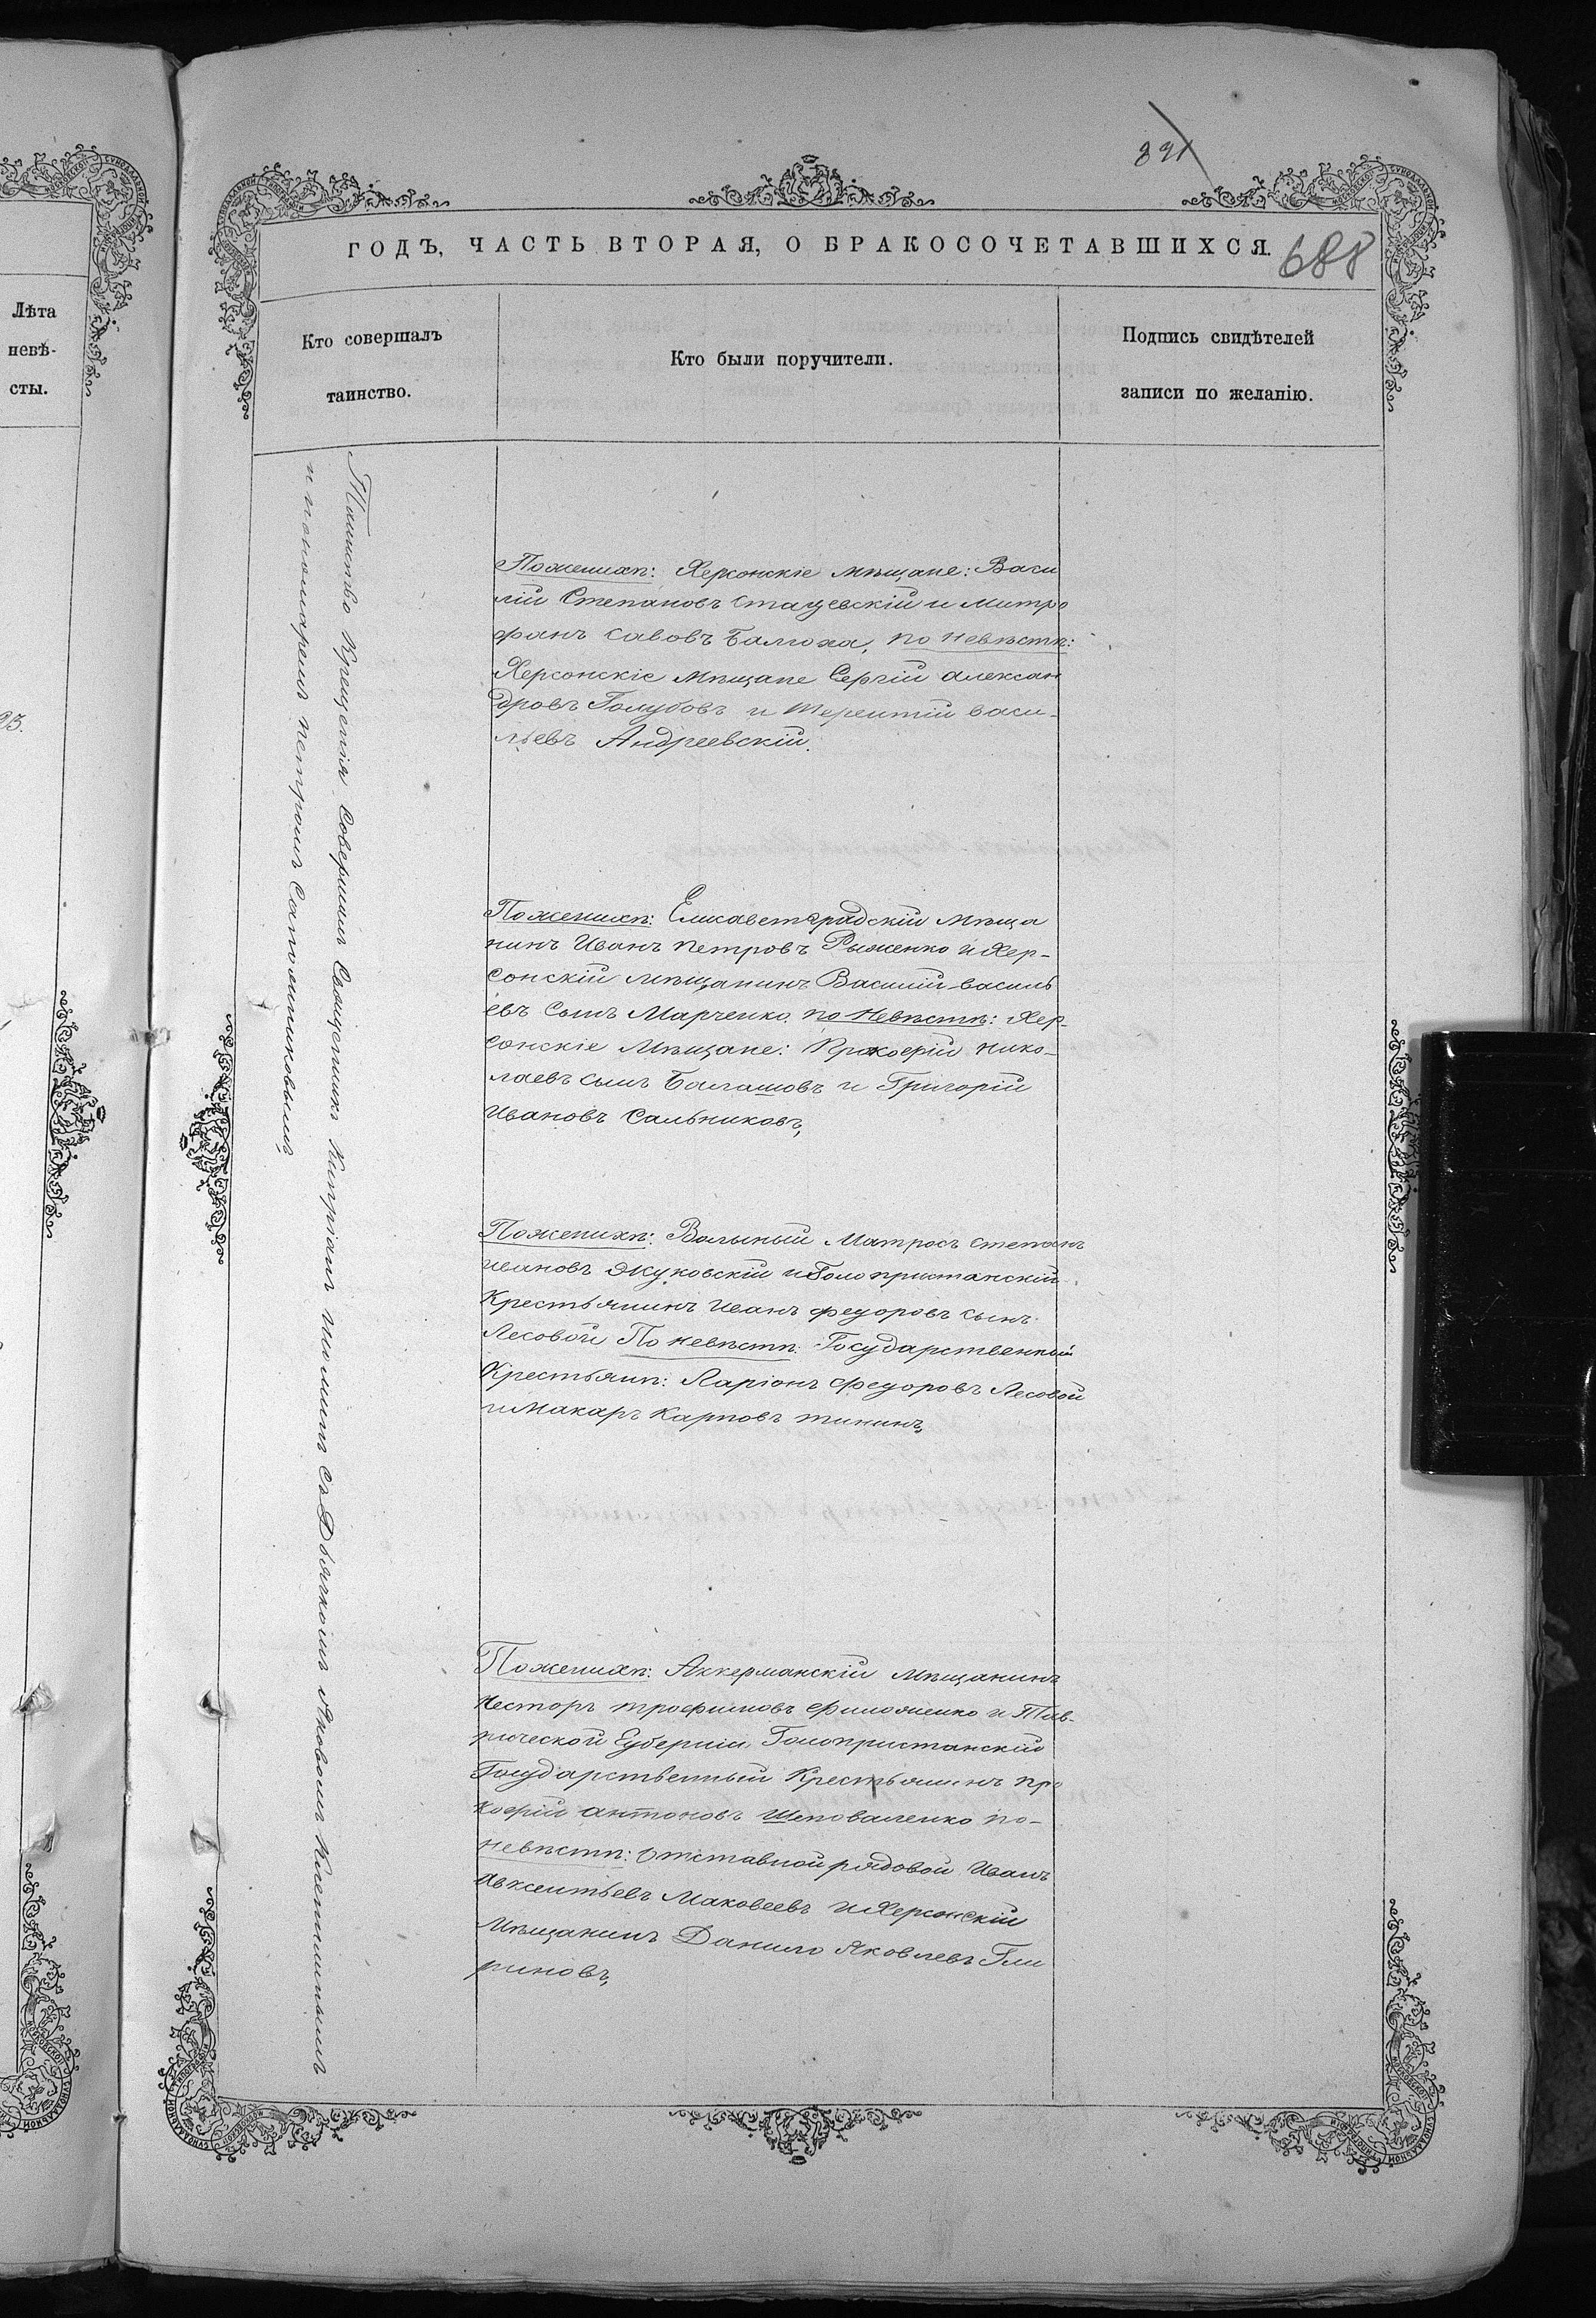 Лѣта
невѣ-
сты.
23.
391
688
ГОДЪ, ЧАСТЬ ВТОРАЯ, О БРАКОСОЧЕТАВШИХСЯ.
Кто совершалъ
таинство.
Кто были поручители.
Подпись свидѣтелей
записи по желанію.
Таинство Крещенія Совершалъ Священникъ Кипріанъ съ Дьячкомъ Яковомъ
и пономаремъ Петромъ Сапожниковымъ
По женихѣ: Херсонскіе мѣщане: Васи
лій Степановъ Сташевскій и Митро
фанъ Савовъ Балюха, по невѣстѣ:
Херсонскіе мѣщане Сергій Алексан
дровъ Голубовъ и Терентій Васи-
льевъ Андреевскій.
По женихѣ: Елисаветградскій мѣща
нинъ Иванъ Петровъ Рыженко и Хер-
сонскій мѣщанинъ Василій Василь
евъ Сынъ Марченко. по Невѣстѣ: Хер-
сонскіе Мѣщане: Прокофій Нико-
лаевъ сынъ Балашовъ и Григорій
Ивановъ Сальниковъ,
По женихѣ: Вольный Матросъ Степанъ
Ивановъ Жуковскій и Голопристанскій
Крестьянинъ Иванъ Федоровъ сынъ
Лесовой По невѣстѣ: Государственный
Крестьянѣ: Ларіонъ Федоровъ Лесовой
и Макаръ Карповъ
По женихѣ: Аккерманскій мѣщанинъ
Несторъ Трофимовъ Филоненко и Тав-
рической Губерніи Голопристанскій
Государственный Крестьянинъ Про
кофій Антоновъ Шеповаленко по-
невѣстѣ: Отставной рядовой Иванъ
Авксентьевъ Маковеевъ и Херсонскій
Мѣщанинъ Данило Яковлевъ